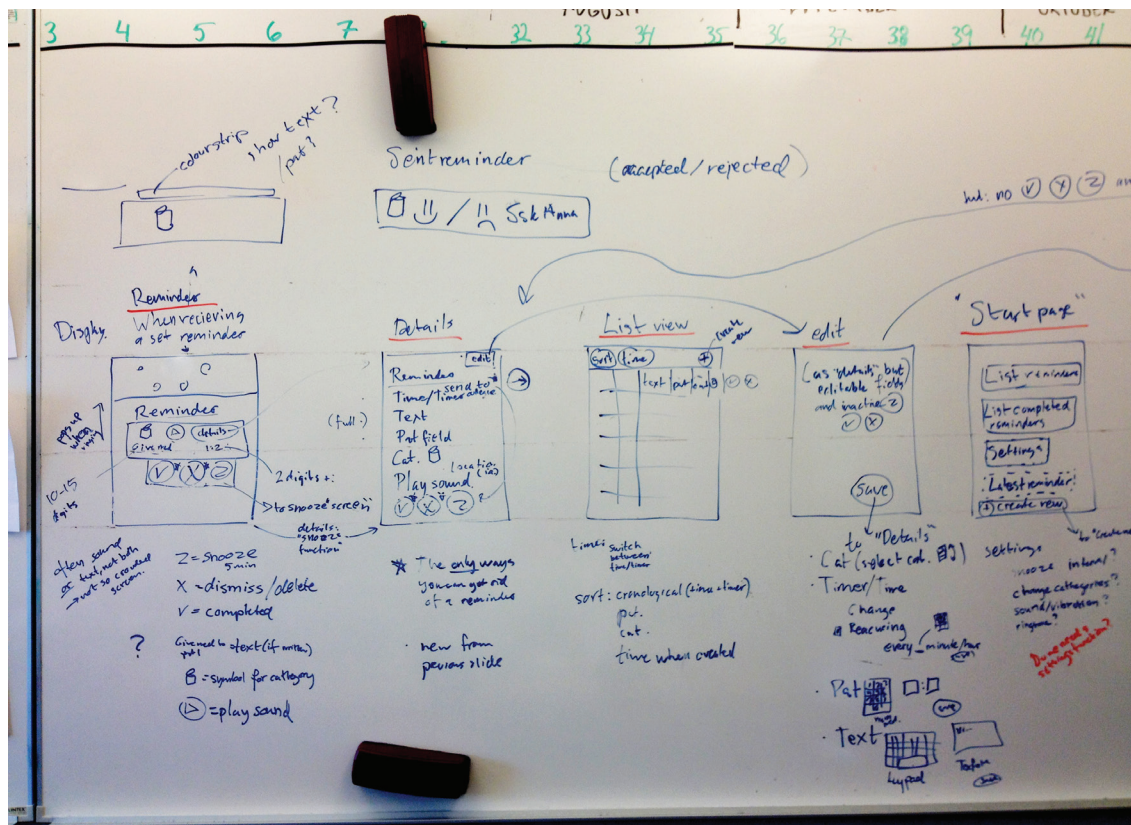 3 4 5 6 7 32 33 34 35 36 37 38 39 40 41
colourstrip
show text?
/pat?
Sentreminder
(accepted/rejected)
Ssk Anna
no V X Z
Display.
Reminder
When recieving
a set reminder
pops up
when
Reminder
details
Give med
1:2
V X Z
10-15
digits
2 digits +:
to snooze screen
details:
"snooze"
function
often sound
or text, not both
→ not so crowded
screen.
Z = snooze
5 min
X = dismiss/delete
V = completed
?
Give med to = text (if written)
pat 1
= symbol for category
▷ = play sound
Details
edit
Reminder
send to
Time/Timer
Text
Pat field
Cat.
Location
Play sound
V X Z
(full:)
* The only ways
you can get rid
of a reminder
· new from
pevious slide
List view
create
new
sort time +
text pat cat V X
time: switch
between
time/timer
sort: cronological (time + timer)
pat.
cat.
time when created
edit
(as "details", but
editable fields
and inactive Z
V X
save
to "Details"
Cat (select cat.
· Timer/Time
Change
Reacuring
every _ minute/hour
· Pat
save
· Text
keypad
save
"Start page"
List reminders
List completed
reminders
Settings
Latest reminder
+ create new
settings
snooze interval?
change cathegories?
sound/vibration?
ringtone?
Do we need a
settings function?